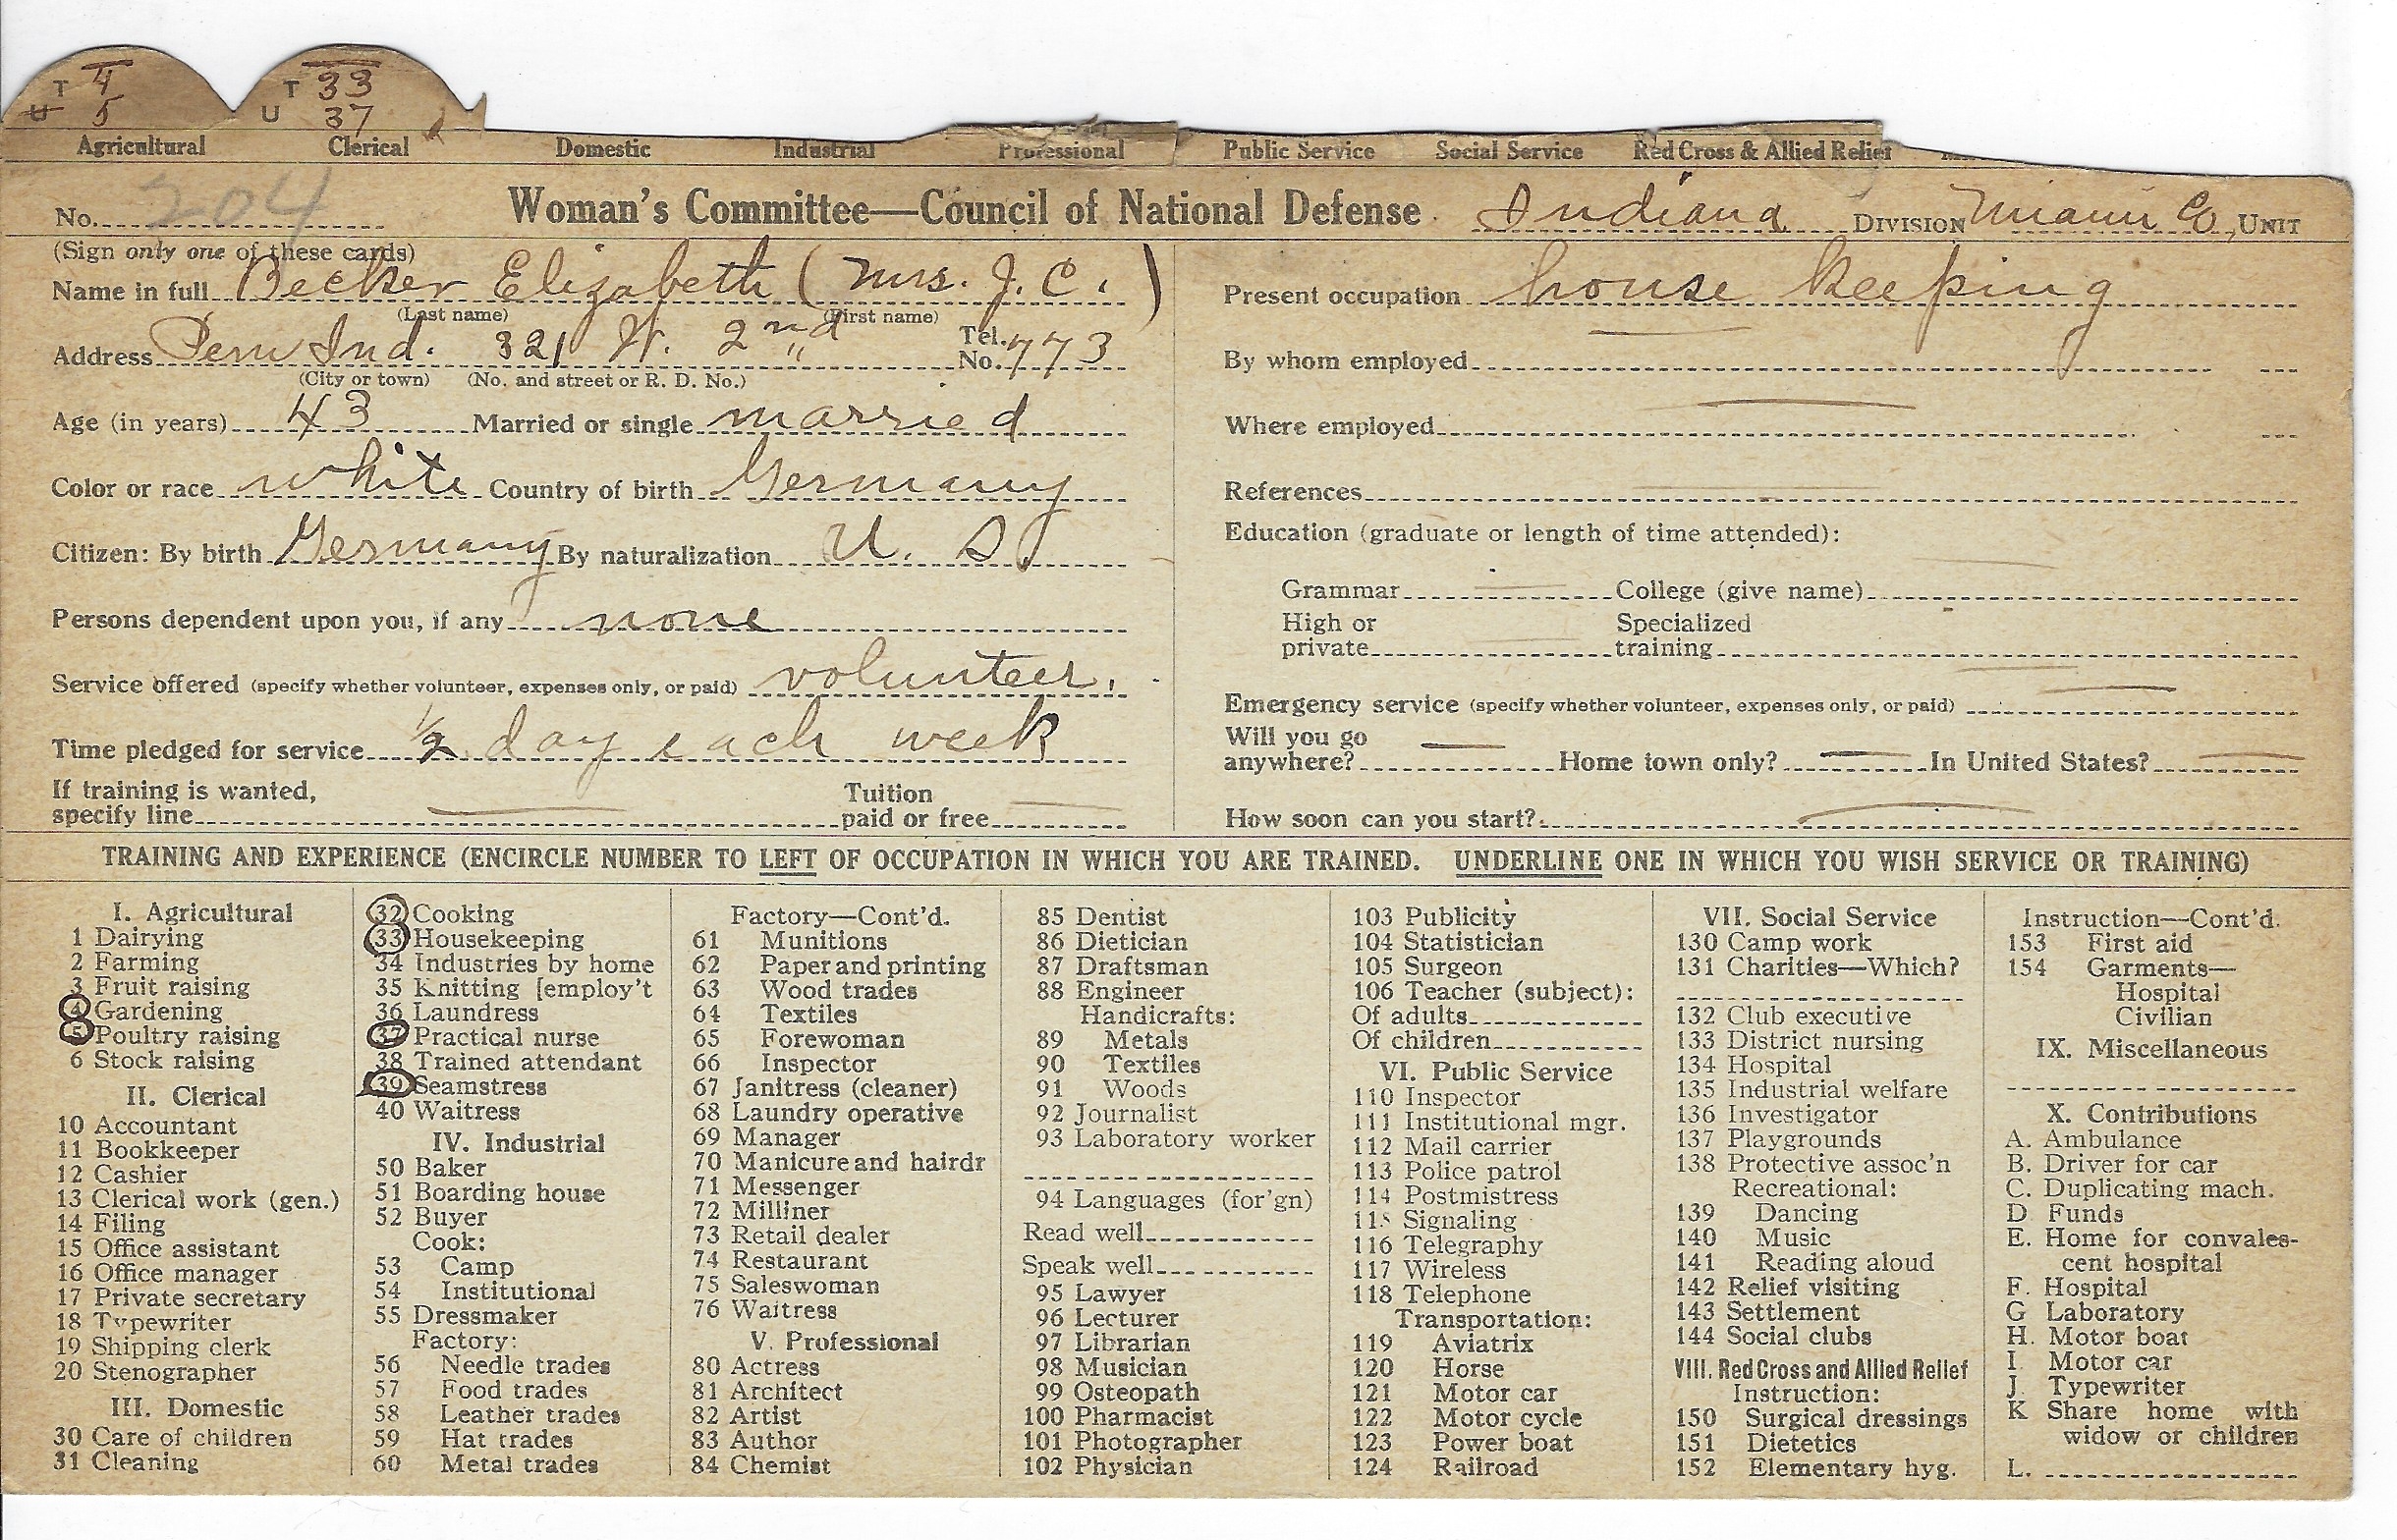 T 4 T 33
U 5 U 37
Agricultural Clerical Domestic Industrial Professional Public Service Social Service Red Cross & Allied Relief
No. 204 Woman's Committee—Council of National Defense. Indiana DIVISION Miami Co. UNIT
(Sign only one of these cards)
Name in full Becker Elizabeth (Mrs. J. C.)
(Last name) (First name)
Address Peru Ind. 321 W. 2nd Tel. No. 773
(City or town) (No. and street or R. D. No.)
Age (in years) 43 Married or single married
Color or race white Country of birth Germany
Citizen: By birth Germany By naturalization U. S
Persons dependent upon you, if any none
Service offered (specify whether volunteer, expenses only, or paid) volunteer.
Time pledged for service 1/2 day each week
If training is wanted,
specify line Tuition paid or free
Present occupation house keeping
By whom employed
Where employed
References
Education (graduate or length of time attended):
Grammar College (give name)
High or private Specialized training
Emergency service (specify whether volunteer, expenses only, or paid)
Will you go anywhere? Home town only? In United States?
How soon can you start?
TRAINING AND EXPERIENCE (ENCIRCLE NUMBER TO LEFT OF OCCUPATION IN WHICH YOU ARE TRAINED. UNDERLINE ONE IN WHICH YOU WISH SERVICE OR TRAINING)
I. Agricultural
1 Dairying
2 Farming
3 Fruit raising
4 Gardening
5 Poultry raising
6 Stock raising
II. Clerical
10 Accountant
11 Bookkeeper
12 Cashier
13 Clerical work (gen.)
14 Filing
15 Office assistant
16 Office manager
17 Private secretary
18 Typewriter
19 Shipping clerk
20 Stenographer
III. Domestic
30 Care of children
31 Cleaning
32 Cooking
33 Housekeeping
34 Industries by home
35 Knitting [employ't
36 Laundress
37 Practical nurse
38 Trained attendant
39 Seamstress
40 Waitress
IV. Industrial
50 Baker
51 Boarding house
52 Buyer
Cook:
53 Camp
54 Institutional
55 Dressmaker
Factory:
56 Needle trades
57 Food trades
58 Leather trades
59 Hat trades
60 Metal trades
Factory—Cont'd.
61 Munitions
62 Paper and printing
63 Wood trades
64 Textiles
65 Forewoman
66 Inspector
67 Janitress (cleaner)
68 Laundry operative
69 Manager
70 Manicure and hairdr
71 Messenger
72 Milliner
73 Retail dealer
74 Restaurant
75 Saleswoman
76 Waitress
V. Professional
80 Actress
81 Architect
82 Artist
83 Author
84 Chemist
85 Dentist
86 Dietician
87 Draftsman
88 Engineer
Handicrafts:
89 Metals
90 Textiles
91 Woods
92 Journalist
93 Laboratory worker
94 Languages (for'gn)
Read well
Speak well
95 Lawyer
96 Lecturer
97 Librarian
98 Musician
99 Osteopath
100 Pharmacist
101 Photographer
102 Physician
103 Publicity
104 Statistician
105 Surgeon
106 Teacher (subject):
Of adults
Of children
VI. Public Service
110 Inspector
111 Institutional mgr.
112 Mail carrier
113 Police patrol
114 Postmistress
115 Signaling
116 Telegraphy
117 Wireless
118 Telephone
Transportation:
119 Aviatrix
120 Horse
121 Motor car
122 Motor cycle
123 Power boat
124 Railroad
VII. Social Service
130 Camp work
131 Charities—Which?
132 Club executive
133 District nursing
134 Hospital
135 Industrial welfare
136 Investigator
137 Playgrounds
138 Protective assoc'n
Recreational:
139 Dancing
140 Music
141 Reading aloud
142 Relief visiting
143 Settlement
144 Social clubs
VIII. Red Cross and Allied Relief
Instruction:
150 Surgical dressings
151 Dietetics
152 Elementary hyg.
Instruction—Cont'd.
153 First aid
154 Garments—
Hospital
Civilian
IX. Miscellaneous
X. Contributions
A. Ambulance
B. Driver for car
C. Duplicating mach.
D. Funds
E. Home for convales-
cent hospital
F. Hospital
G Laboratory
H. Motor boat
I. Motor car
J. Typewriter
K Share home with
widow or children
L.